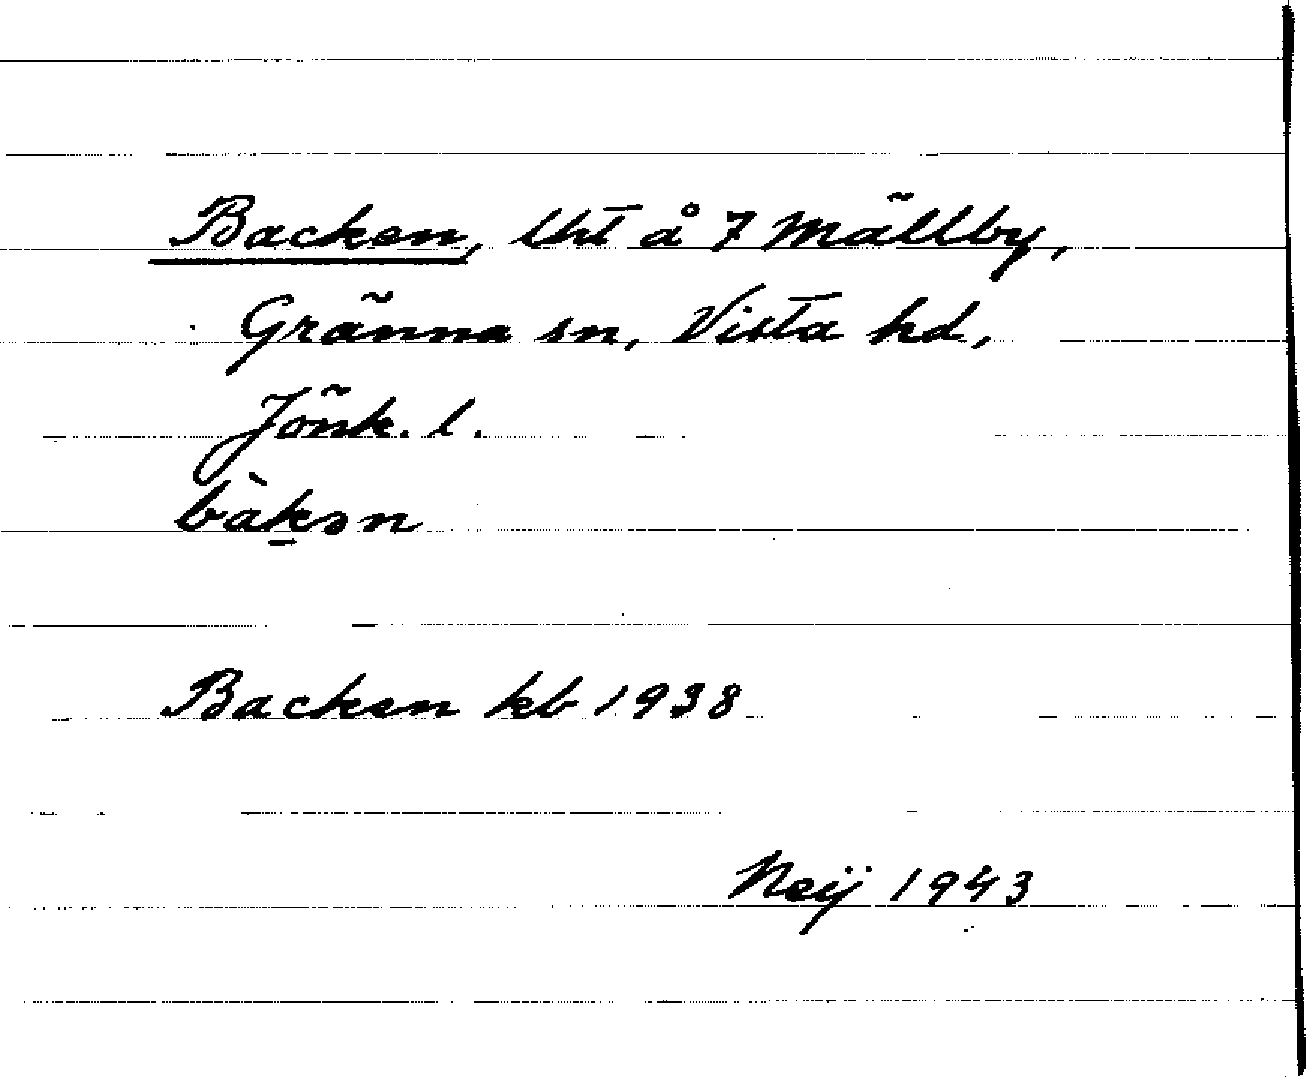 Backen, lht å 7 Mällby,
Gränna sn, Vista hd,
Jönk. l.
bàk̠ən
Backen kb 1938
Neij 1943